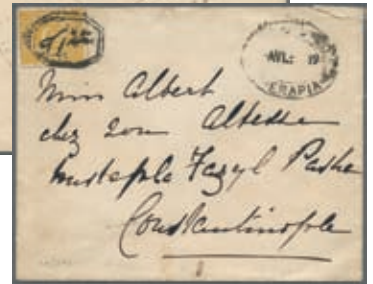 AVL: 19
ERAPIA
Miss Albert
chez Son Altesse
Mustapha Fazyl Pasha
Constantinople